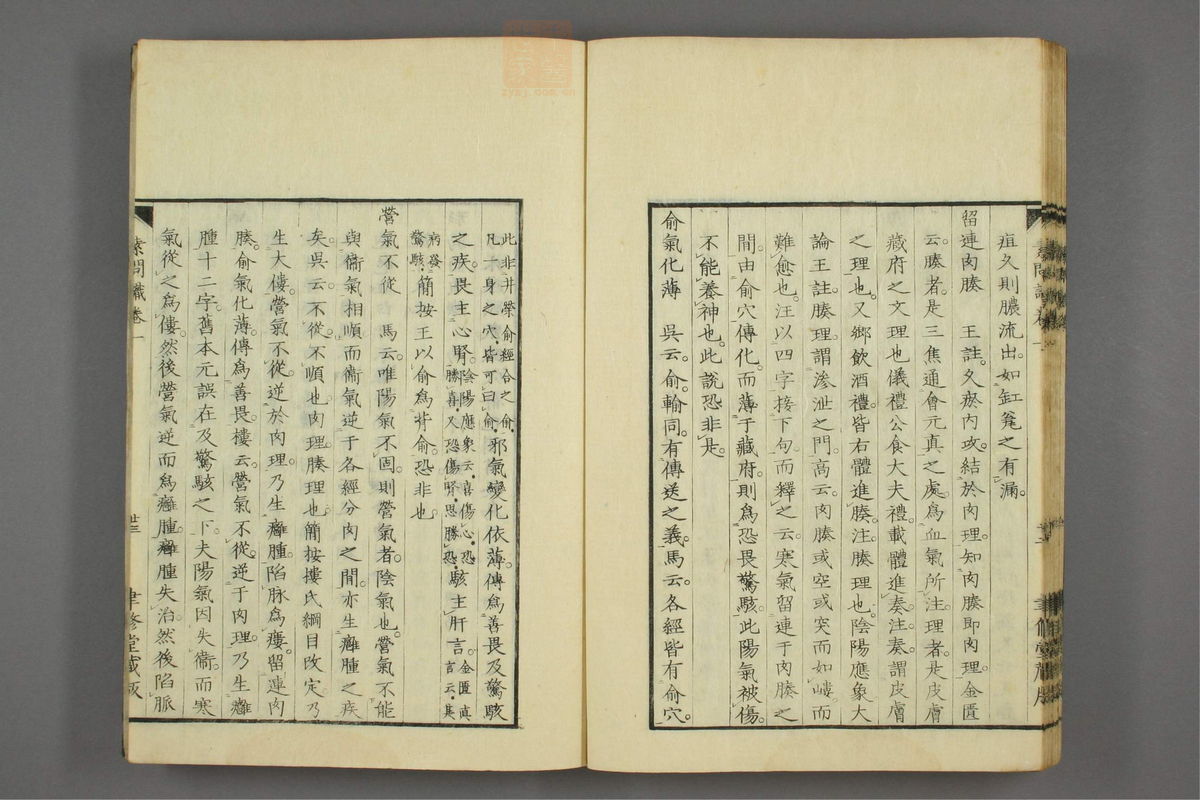 疽久則膿流出如缸甕之有漏
留連肉腠　王註久瘀內攻結於肉理知肉腠即肉理金匱
云腠者是三焦通會元真之處為血氣所注理者是皮膚
藏府之文理也儀禮公食大夫禮載體進奏注奏謂皮膚
之理也又鄉飲酒禮皆右體進腠注腠理也陰陽應象大
論王註腠理謂滲泄之門高云肉腠或空或突而如嶁而
難愈也汪以四字接下句而釋之云寒氣留連于肉腠之
間由俞穴傳化而薄于藏府則為恐畏驚駭此陽氣被傷
不能養神也此說恐非是
俞氣化薄　吳云俞輸同有傳送之義馬云各經皆有俞穴
此非井滎俞經合之俞
凡一身之穴皆可曰俞
邪氣變化依薄傳為善畏及驚駭
之疾畏主心腎
陰陽應象云喜傷心恐
勝喜又恐傷腎思勝恐
駭主肝言
金匱真
言云其
病發
驚駭
簡按王以俞為背俞恐非也
營氣不從　馬云唯陽氣不固則營氣者陰氣也營氣不能
與衞氣相順而衞氣逆于各經分肉之間亦生癰腫之疾
矣吳云不從不順也肉理腠理也簡按樓氏綱目改定乃
生大僂營氣不從逆於肉理乃生癰腫陷脉為瘻留連肉
腠俞氣化薄傳為善畏樓云營氣不從逆于肉理乃生癰
腫十二字舊本元誤在及驚駭之下夫陽氣因失衞而寒
氣從之為僂然後營氣逆而為癰腫癰腫失治然後陷脈
素問識卷一
廿三
聿修堂藏版